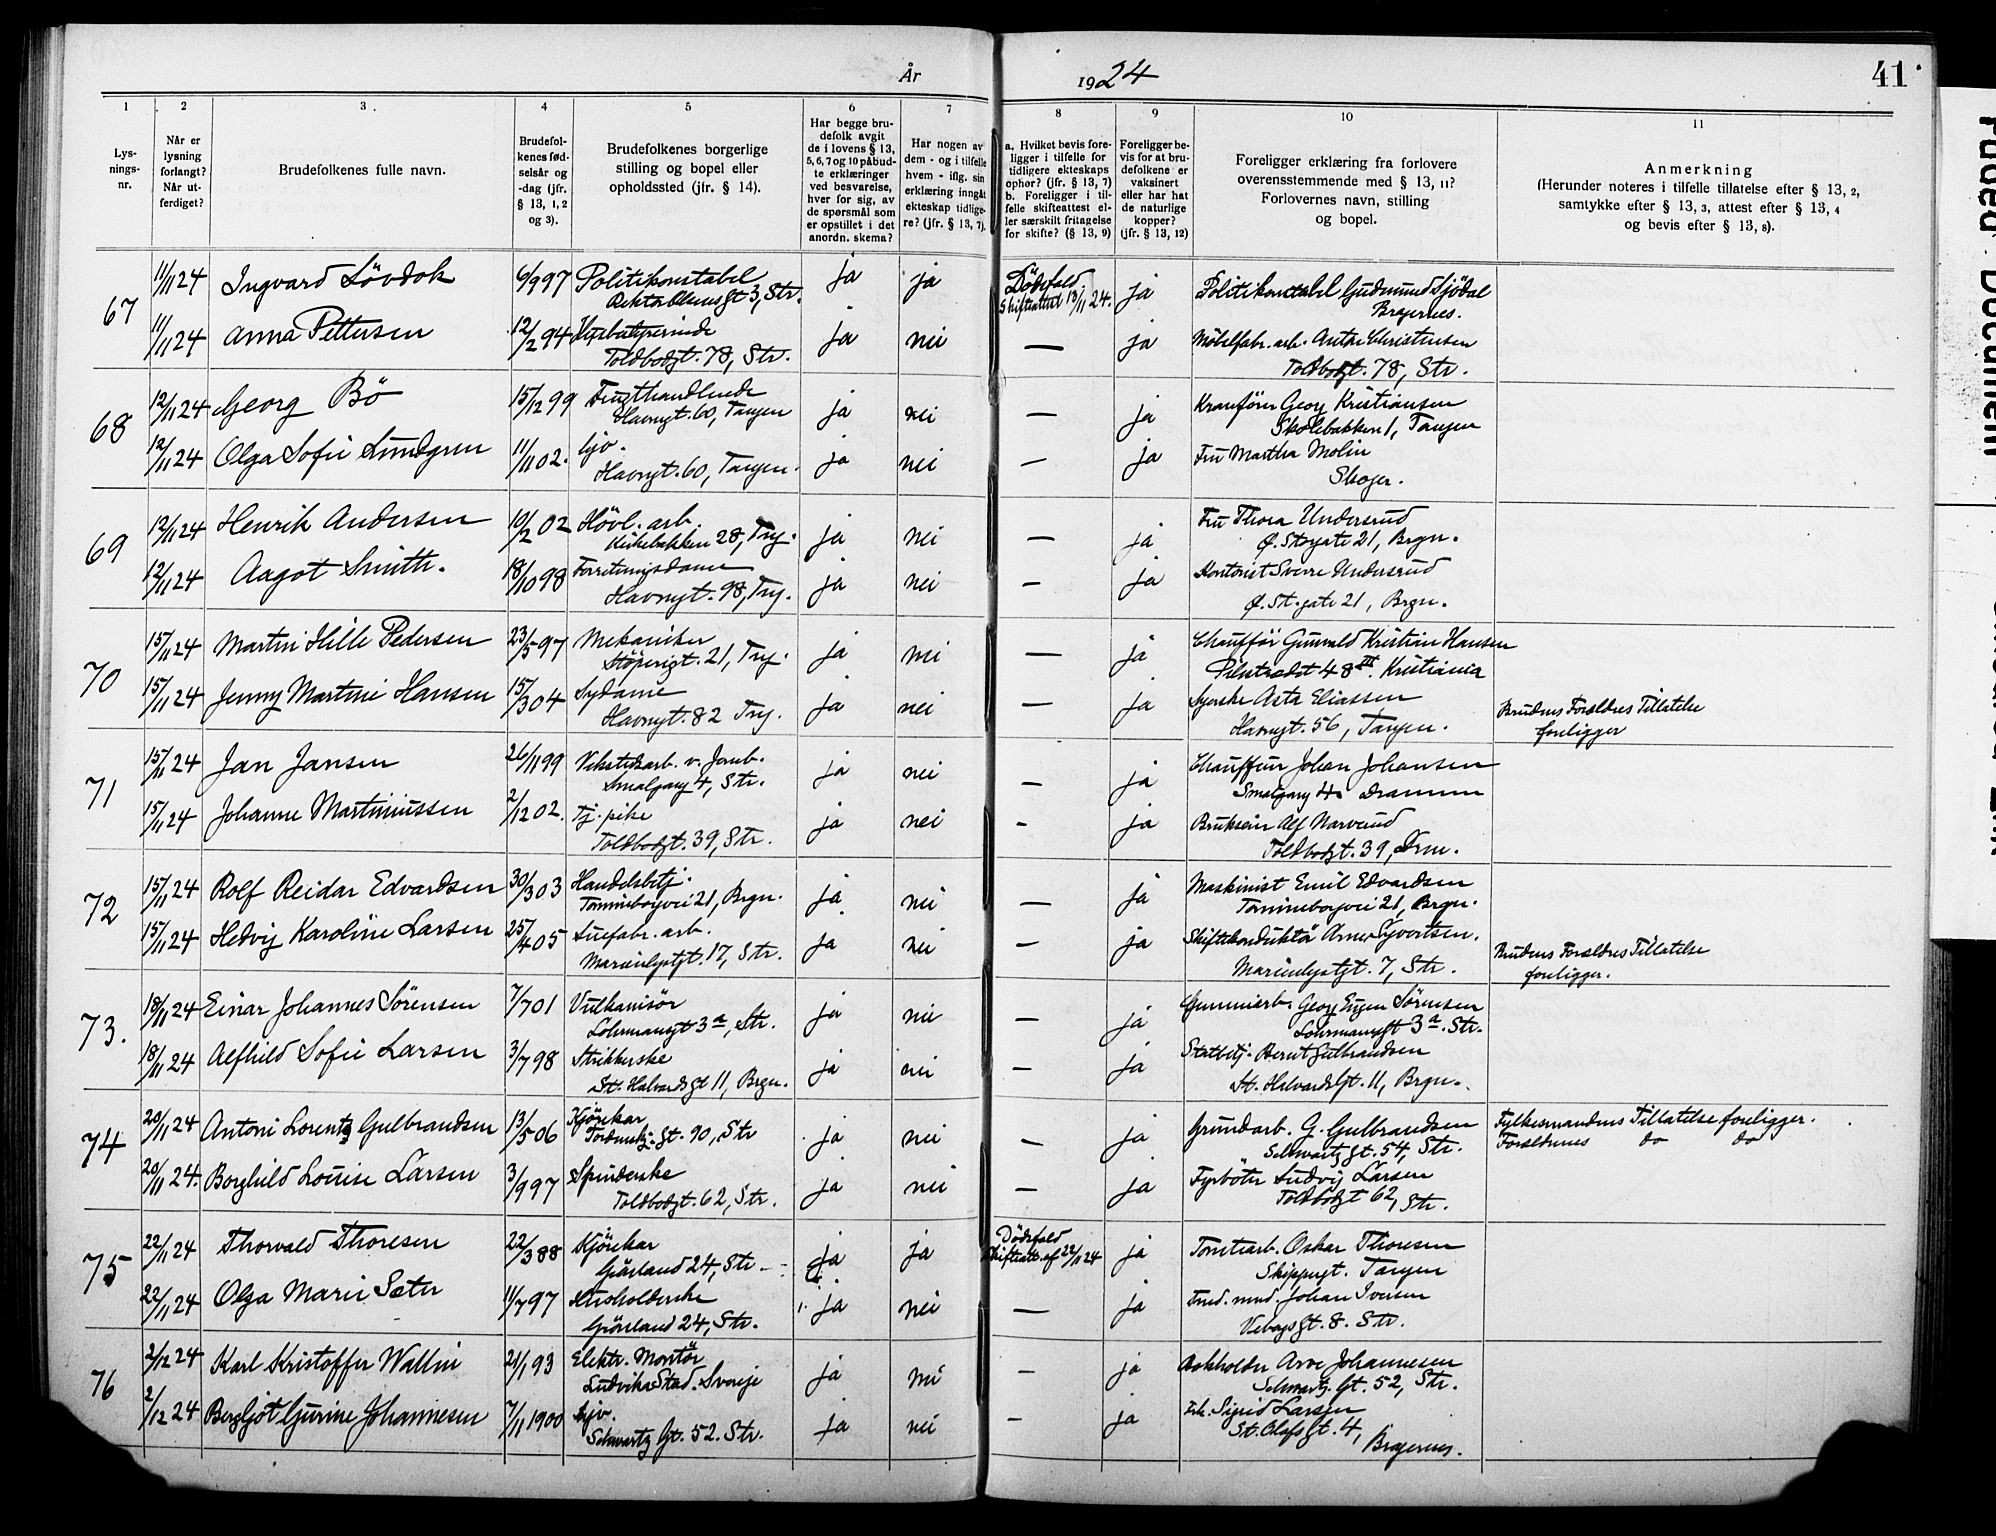 År
1924
41
1
2
3
4
5
6
7
8
9
10
11
Lys-
nings-
nr.
Når er
lysning
forlangt?
Når ut-
ferdiget?
Brudefolkenes fulle navn.
Brudefol-
kenes fød-
selsår og
-dag (jfr.
§ 13, 1, 2
og 3).
Brudefolkenes borgerlige
stilling og bopel eller
opholdssted (jfr. § 14).
Har begge bru-
defolk avgit
de i lovens § 13,
5, 6, 7 og 10 påbud-
te erklæringer
ved besvarelse,
hver for sig, av
de spørsmål som
er opstillet i det
anordn. skema?
Har nogen av
dem - og i tilfelle
hvem - iflg. sin
erklæring inngåt
ekteskap tidlige-
re? (jfr. § 13, 7).
a. Hvilket bevis fore-
ligger i tilfelle for
tidligere ekteskaps
ophør? (jfr. § 13, 7)
b. Foreligger i til-
felle skifteattest el-
ler særskilt fritagelse
for skifte? (§ 13, 9)
Foreligger be-
vis for at bru-
defolkene er
vaksinert
eller har hat
de naturlige
kopper?
(jfr. § 13, 12)
Foreligger erklæring fra forlovere
overensstemmende med § 13, 11?
Forlovernes navn, stilling
og bopel.
Anmerkning
(Herunder noteres i tilfelle tillatelse efter § 13, 2,
samtykke efter § 13, 3, attest efter § 13, 4
og bevis efter § 13, 8).
67
11/11 24 Ingvard Lövdok 6/9 97 Politikonstabel ja ja Dödsfald ja Politikonstabel Gudmund Sjödal
Gt 3, Str. Skifteattest 13/11 24. Bragernes.
11/11 24 Anna Pettersen 12/2 94 ja nei — ja Möbelfabr. arb. Anthe Christensen
Toldbodgt. 78, Str. Toldbodgt. 78, Str.
68
12/11 24 Georg Bö 15/12 99 Frugthandlende ja nei — ja Kranförer Georg Kristiansen
Havnegt. 60, Tangen Skolebakken 1, Tangen
12/11 24 Olga Sofie Lundgren 11/11 02. hjv. ja nei — ja Fru Martha Molin
Havnegt. 60, Tangen. Skoger.
69
12/11 24 Henrik Andersen 10/2 02 Hövl. arb. ja nei — ja Fru Thora Undersrud
Kirkebakken 28, Tng. Ø. Storgate 21, Brgn.
12/11 24 Aagot Smith. 18/10 98 Forretningsdame ja nei — ja Kontorist Sverre Undersrud
Havnegt. 98, Tng. Ø. St. gate 21, Brgn.
70
15/11 24 Martin Hille Pedersen 23/5 97 Mekaniker ja nei — ja Chaufför Gunvald Kristian Hansen
Støperigt. 21, Tng. Pilestrædet 48 III. Kristiania
15/11 24 Jenny Martine Hansen 15/3 04 Sydame ja nei — ja Syerske Asta Eliassen
Havnegt. 82 Tng. Havnegt. 56, Tangen.
Brudens Forældres Tillatelse
foreligger
71
15/11 24 Jan Jansen 26/11 99 Vekstedsarb. v. Jernb. ja nei — ja Chauffeur Johan Johansen
Smalgang 4, Str. Smalgang 4. Drammen
15/11 24 Johanne Martiniussen 2/12 02. Tj. pike ja nei - ja Brukseier Alf Narverud
Toldbodgt. 39, Str. Toldbodgt. 39, Drm.
72
15/11 24 Rolf Reidar Edvardsen 30/3 03 Handelsbetj. ja nei — ja Maskinist Emil Edvardsen
Tomineborgvei 21, Brgn. Tomineborgvei 21, Brgn.
15/11 24 Hedvig Karoline Larsen 25/4 05 arb. ja nei — ja Skiftekonduktör Arne Syvertsen.
Marienlystgt. 17, Str. Marienlystgt. 7, Str.
Brudens Forældres Tillatelse
foreligger.
73.
18/11 24 Einar Johannes Sörensen 7/7 01 Vulkanisör ja nei — ja Gummiarb. Georg Eugen Sörensen
Lohrmansgt 3 a, Str. Lohrmansgt 3 a. Str.
18/11 24 Alfhild Sofie Larsen 3/7 98 Strikkerske ja nei — ja Statbetj. Bernt Gulbrandsen
St. Halvards Gt 11, Brgn. St. Halvards Gt. 11, Brgn.
74
20/11 24 Antoni Lorentz Gulbrandsen 13/5 06 Kjörekar ja nei — ja Grundarb. G. Gulbrandsen
Gt. 90, Str Schwartz Gt. 54, Str.
Fylkesmandens Tillatelse foreligger.
Forældrenes do do
20/11 24. Borghild Louise Larsen 3/9 97 Spinderske ja nei — ja Fyrböter Ludvig Larsen
Toldbodgt. 62, Str. Toldbodgt 62, Str.
75
22/11 24 Thorvald Thoresen 22/3 88 Kjörekar ja ja Dödsfald ja Tomtearb. Oskar Thoresen
Grönland 24, Str Skifteatt. af 22/11 24 Skippergt. Tangen
22/11 24 Olga Marie Sæter 11/7 97 Husholderske ja nei — ja Johan Iversen
Grönland 24, Str. Gt. 8. Str.
76
2/12 24 Karl Kristoffer Wallin 21/1 93 Elektr. Montör ja nei — ja Bokholder Arve Johannesen
Ludvika Stad. Sverige Schwartz Gt. 52, Str.
2/12 24 Bergljot Gurine Johannesen 7/11 1900 hjv. ja nei — ja Frk. Sigrid Larsen
Schwartz Gt. 52. Str. St. Olafs Gt. 4,
Bragernes.